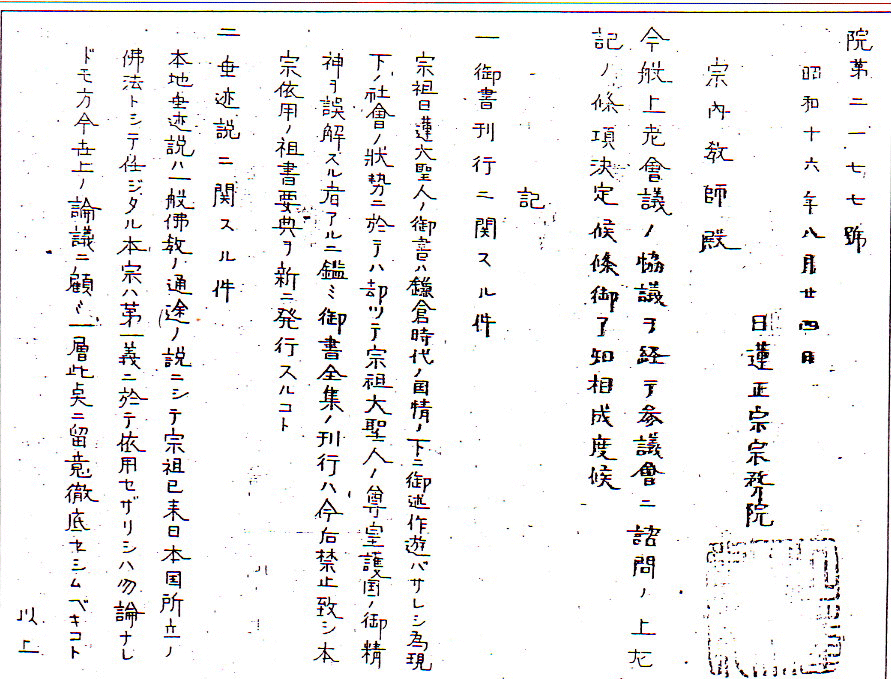 院第二一七七號
昭和十六年八月廿四日
日蓮正宗宗務院
宗内教師殿
今般上老會議ノ協議ヲ経テ参議會ニ諮問ノ上左
記ノ條項決定候條御了知相成度候
記
一御書刊行ニ関スル件
宗祖日蓮大聖人ノ御書ハ鎌倉時代ノ国情ノ下ニ御述作遊バサレシ為現
下ノ社會ノ狀勢ニ於テハ却ツテ宗祖大聖人ノ尊皇護国ノ御精
神ヲ誤解スル者アルニ鑑ミ御書全集ノ刊行ハ今后禁止致シ本
宗依用ノ祖書要典ヲ新ニ発行スルコト
二垂迹説ニ関スル件
本地垂迹説ハ一般佛教ノ通途ノ説ニシテ宗祖已来日本国所立ノ
佛法トシテ任ジタル本宗ハ苐一義ニ於テ依用セザリシハ勿論ナレ
ドモ方今世上ノ論議ニ顧ミ一層此点ニ留意徹底セシムベキコト
以上